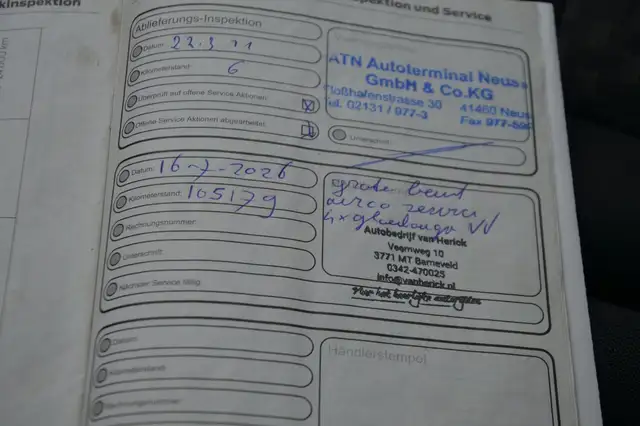 spektion und Service
Ablieferungs-Inspektion
Datum: 22.3 11
Kilometerstand: 6
Überprüft auf offene Service Aktionen:
Offene Service Aktionen abgearbeitet:
ATN Autoterminal Neuss
GmbH & Co.KG
Floßhafenstrasse 30 41460 Neuss
Tel. 02131 / 977-3 Fax 977-
Unterschrift
Datum: 16-7-2026
Kilometerstand: 105179
Rechnungsnummer:
Unterschrift:
Nächster Service fällig:
grote beurt
airco
4x
Autobedrijf van Herick
Veemweg 10
3771 MT Barneveld
0342-470025
info@vanherick.nl
Datum:
Kilometerstand:
Rechnungsnummer:
Händlerstempel